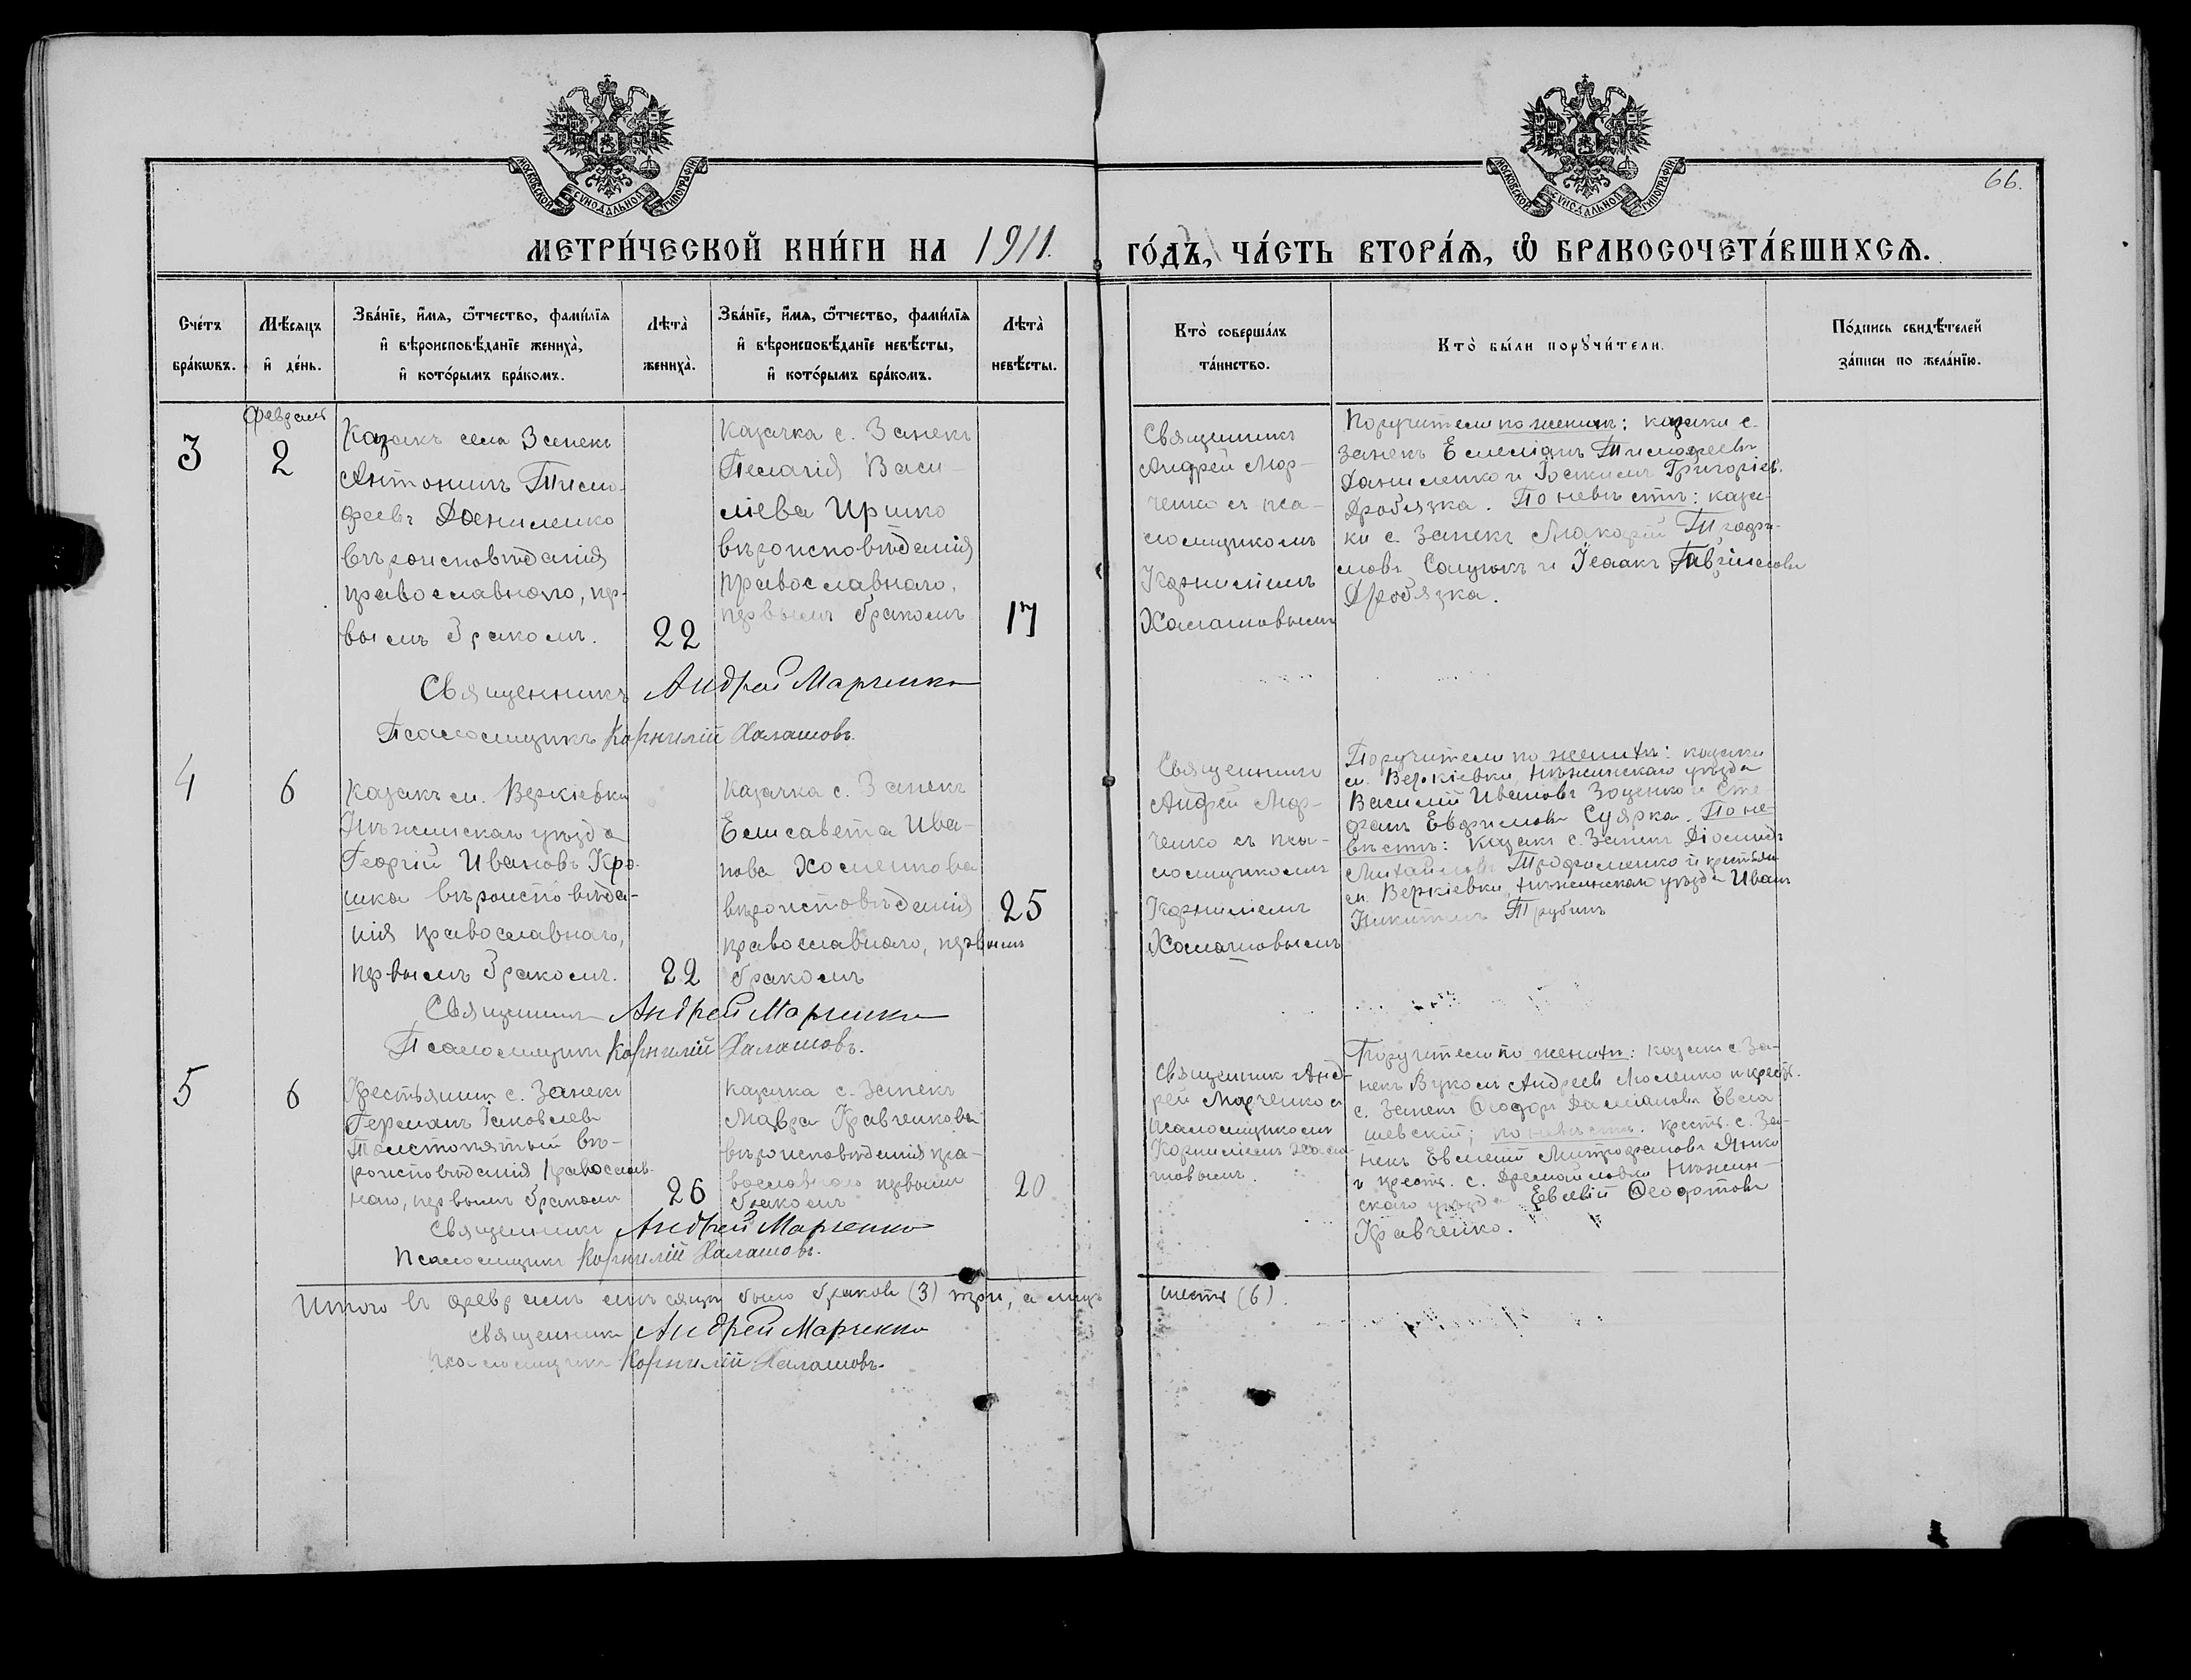 МОСКОВСКОЙ СѴНОДАЛЬНОЙ ТИПОГРАФІИ
МОСКОВСКОЙ СѴНОДАЛЬНОЙ ТИПОГРАФІИ
66.
МЕТРИ́ЧЕСКОЙ КНИ́ГИ НА 1911. ГО́ДЪ, ЧА́СТЬ ВТОРА́Ѧ, Ѿ БРАКОСОЧЕТА́ВШИХСѦ.
Сче́тъ бра́кѡвъ.
Мѣ́сѧцъ и҆ де́нь.
Зва́нїе, и҆́мѧ, ѻ҆́тчество, фами́лїѧ
и҆ вѣроисповѣ́данїе жениха̀,
и҆ кото́рымъ бра́комъ.
Лѣта̀ жениха̀.
Зва́нїе, и҆́мѧ, ѻ҆́тчество, фами́лїѧ
и҆ вѣроисповѣ́данїе невѣ́сты,
и҆ кото́рымъ бра́комъ.
Лѣта̀ невѣ́сты.
Кто̀ соверша́лъ
та́инство.
Кто̀ бы́ли порꙋчи́тели.
По́дпись свидѣ́телей
за́писи по жела́нїю.
февраль
3
2
Казакъ села Занекъ
Антонинъ Тимо-
феевъ Даниленко
вѣроисповѣданія
православнаго, пер-
вымъ бракомъ.
22
Казачка с. Занекъ
Пелагія Васи-
ліева Иршко
вѣроисповѣданія
православнаго,
первымъ бракомъ
17
Священникъ
Андрей Мар-
ченко съ пса-
ломщикомъ
Корниліемъ
Халашовымъ
Поручители по женихѣ: казаки с.
Занекъ Емеліанъ Тимофеевъ
Даниленко и Іоакимъ Григоріев.
Дробязка. По невѣстѣ: каза-
ки с. Занекъ Макарій Трофи-
мовъ Солушкъ и Исаакъ Гавриловъ
Дробязка.
Священникъ Андрей Марченко
Псаломщикъ Корнилій Халашовъ.
4
6
Казакъ м. Веркіевки
Нѣжинскаго уѣзда
Георгій Ивановъ Кро-
шка вѣроисповѣда-
нія православнаго,
первымъ бракомъ.
22
Казачка с. Занекъ
Елисавета Ива-
нова Хоменкова
вѣроисповѣданія
православнаго, первымъ
бракомъ
25
Священникъ
Андрей Мар-
ченко съ пса-
ломщикомъ
Корниліемъ
Халашовымъ
Поручители по женихѣ: казаки
м. Веркіевки, Нѣжинскаго уѣзда
Василій Ивановъ Зоценко и Сте-
фанъ Евфимовъ Суярка. По не-
вѣстѣ: казакъ с. Занекъ Діомидъ
Михайловъ Трофименко и крестьян.
м. Веркіевки, Нѣжинскаго уѣзда Иванъ
Никитинъ Трубинъ
Священникъ Андрей Марченко
Псаломщикъ Корнилій Халашовъ.
5
6
Крестьянинъ с. Занекъ
Германъ Іаковлевъ
Толстопятый вѣ-
роисповѣданія православ-
наго, первымъ бракомъ
26
Казачка с. Занекъ
Мавра Кравченкова
вѣроисповѣданія пра-
вославнаго первымъ
бракомъ
20
Священникъ Анд-
рей Марченко съ
псаломщикомъ
Корниліемъ Хала-
шовымъ.
Поручители по женихѣ: казакъ с. За-
некъ Вуколъ Андреевъ Моленко и крест.
с. Занекъ Ѳеодоръ Даміановъ Евла
шевскій; по невѣстѣ: крест. с. За-
некъ Евмений Митрофановъ Янко
и крест. с. Дремайловки Нѣжин-
скаго уѣзда Евсевій Ѳеофитовъ
Кравченко.
Священникъ Андрей Марченко
Псаломщикъ Корнилій Халашовъ.
Итого въ февралѣ мѣсяцѣ было браковъ (3) три, а лицъ шесть (6).
Священникъ Андрей Марченко
Псаломщикъ Корнилій Халашовъ.